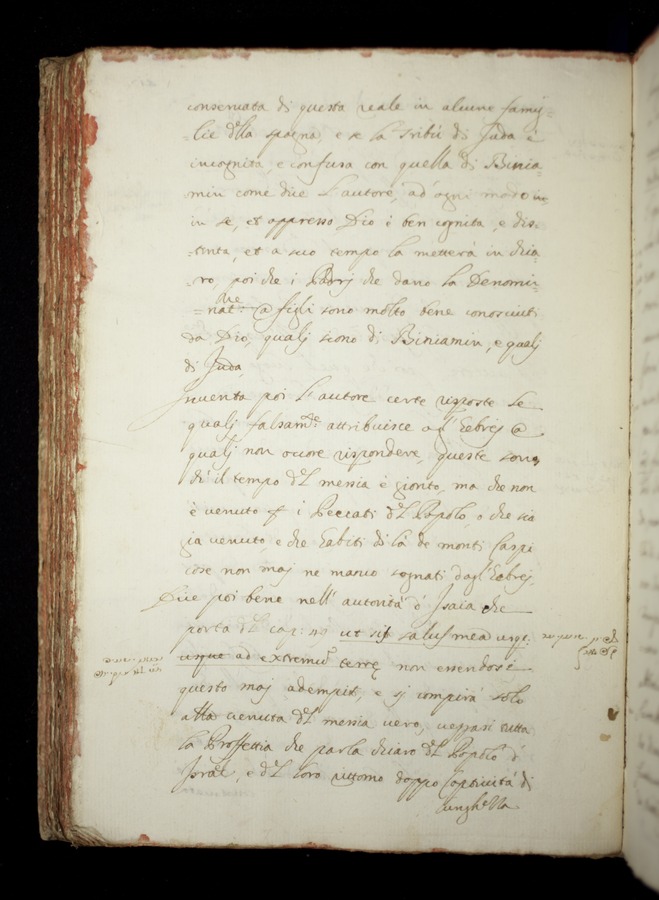 conseruata di questa reale in alcune fami=
=lie d'lla spagna, e se la Tribù di Juda è
incognita, e confusa con quella di Binia=
min come dice l'autore, ad ogni modo
in se, et appresso Dio è ben cognita, e dis=
=tinta, et a suo tempo la metterà in chia=
=ro, poi che i Padrj che dano la Denomin=
=nat.ne @ figli sono molto bene conosciuti
da Dio, qualj siano di Biniamin, e qualj
di Juda
Inuenta poi l'autore certe risposte le
qualj falsam.te attribuisce agl'Ebrej @
qualj non ocore rispondere, queste sono,
ch' il tempo d'l messia è gionto, ma che non
è venuto p i Peccati d'l Popolo, o che sia
gia venuto, e che habiti di là de monti Caspi
cose non maj ne manco sognati dagl'Ebrej
Dice poi bene nell'autorità d'Isaia che
porta d'l cap: 49 ut sit salus mea usq:
usque ad extremũ terrę non essendosi
questo maj adempit, e si compirà solo
alla venuta d'l messia vero, veggasi tutta
la Proffettia che parla chiaro d'l Popolo d'
Israel, e d'l loro ritorno doppo Captiuità di
lungh